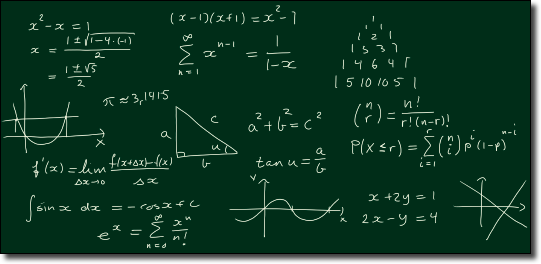 x² - x = 1
x = (1 ± √(1 - 4·(-1)))/2
= (1 ± √5)/2
(x-1)(x+1) = x² - 1
∞ ∑ n=1 x^(n-1) = 1/(1-x)
1
1 1
1 2 1
1 3 3 1
1 4 6 4 1
1 5 10 10 5 1
π ≈ 3,1415
x
a c u b
a² + b² = c²
tan u = a/b
(n r) = n!/(r!(n-r)!)
P(X ≤ r) = r ∑ i=1 (n i) p^i (1-p)^(n-i)
f'(x) = lim Δx→0 (f(x+Δx)-f(x))/Δx
∫ sin x dx = -cos x + C
e^x = ∞ ∑ n=0 x^n/n!
y
x
x + 2y = 1
2x - y = 4